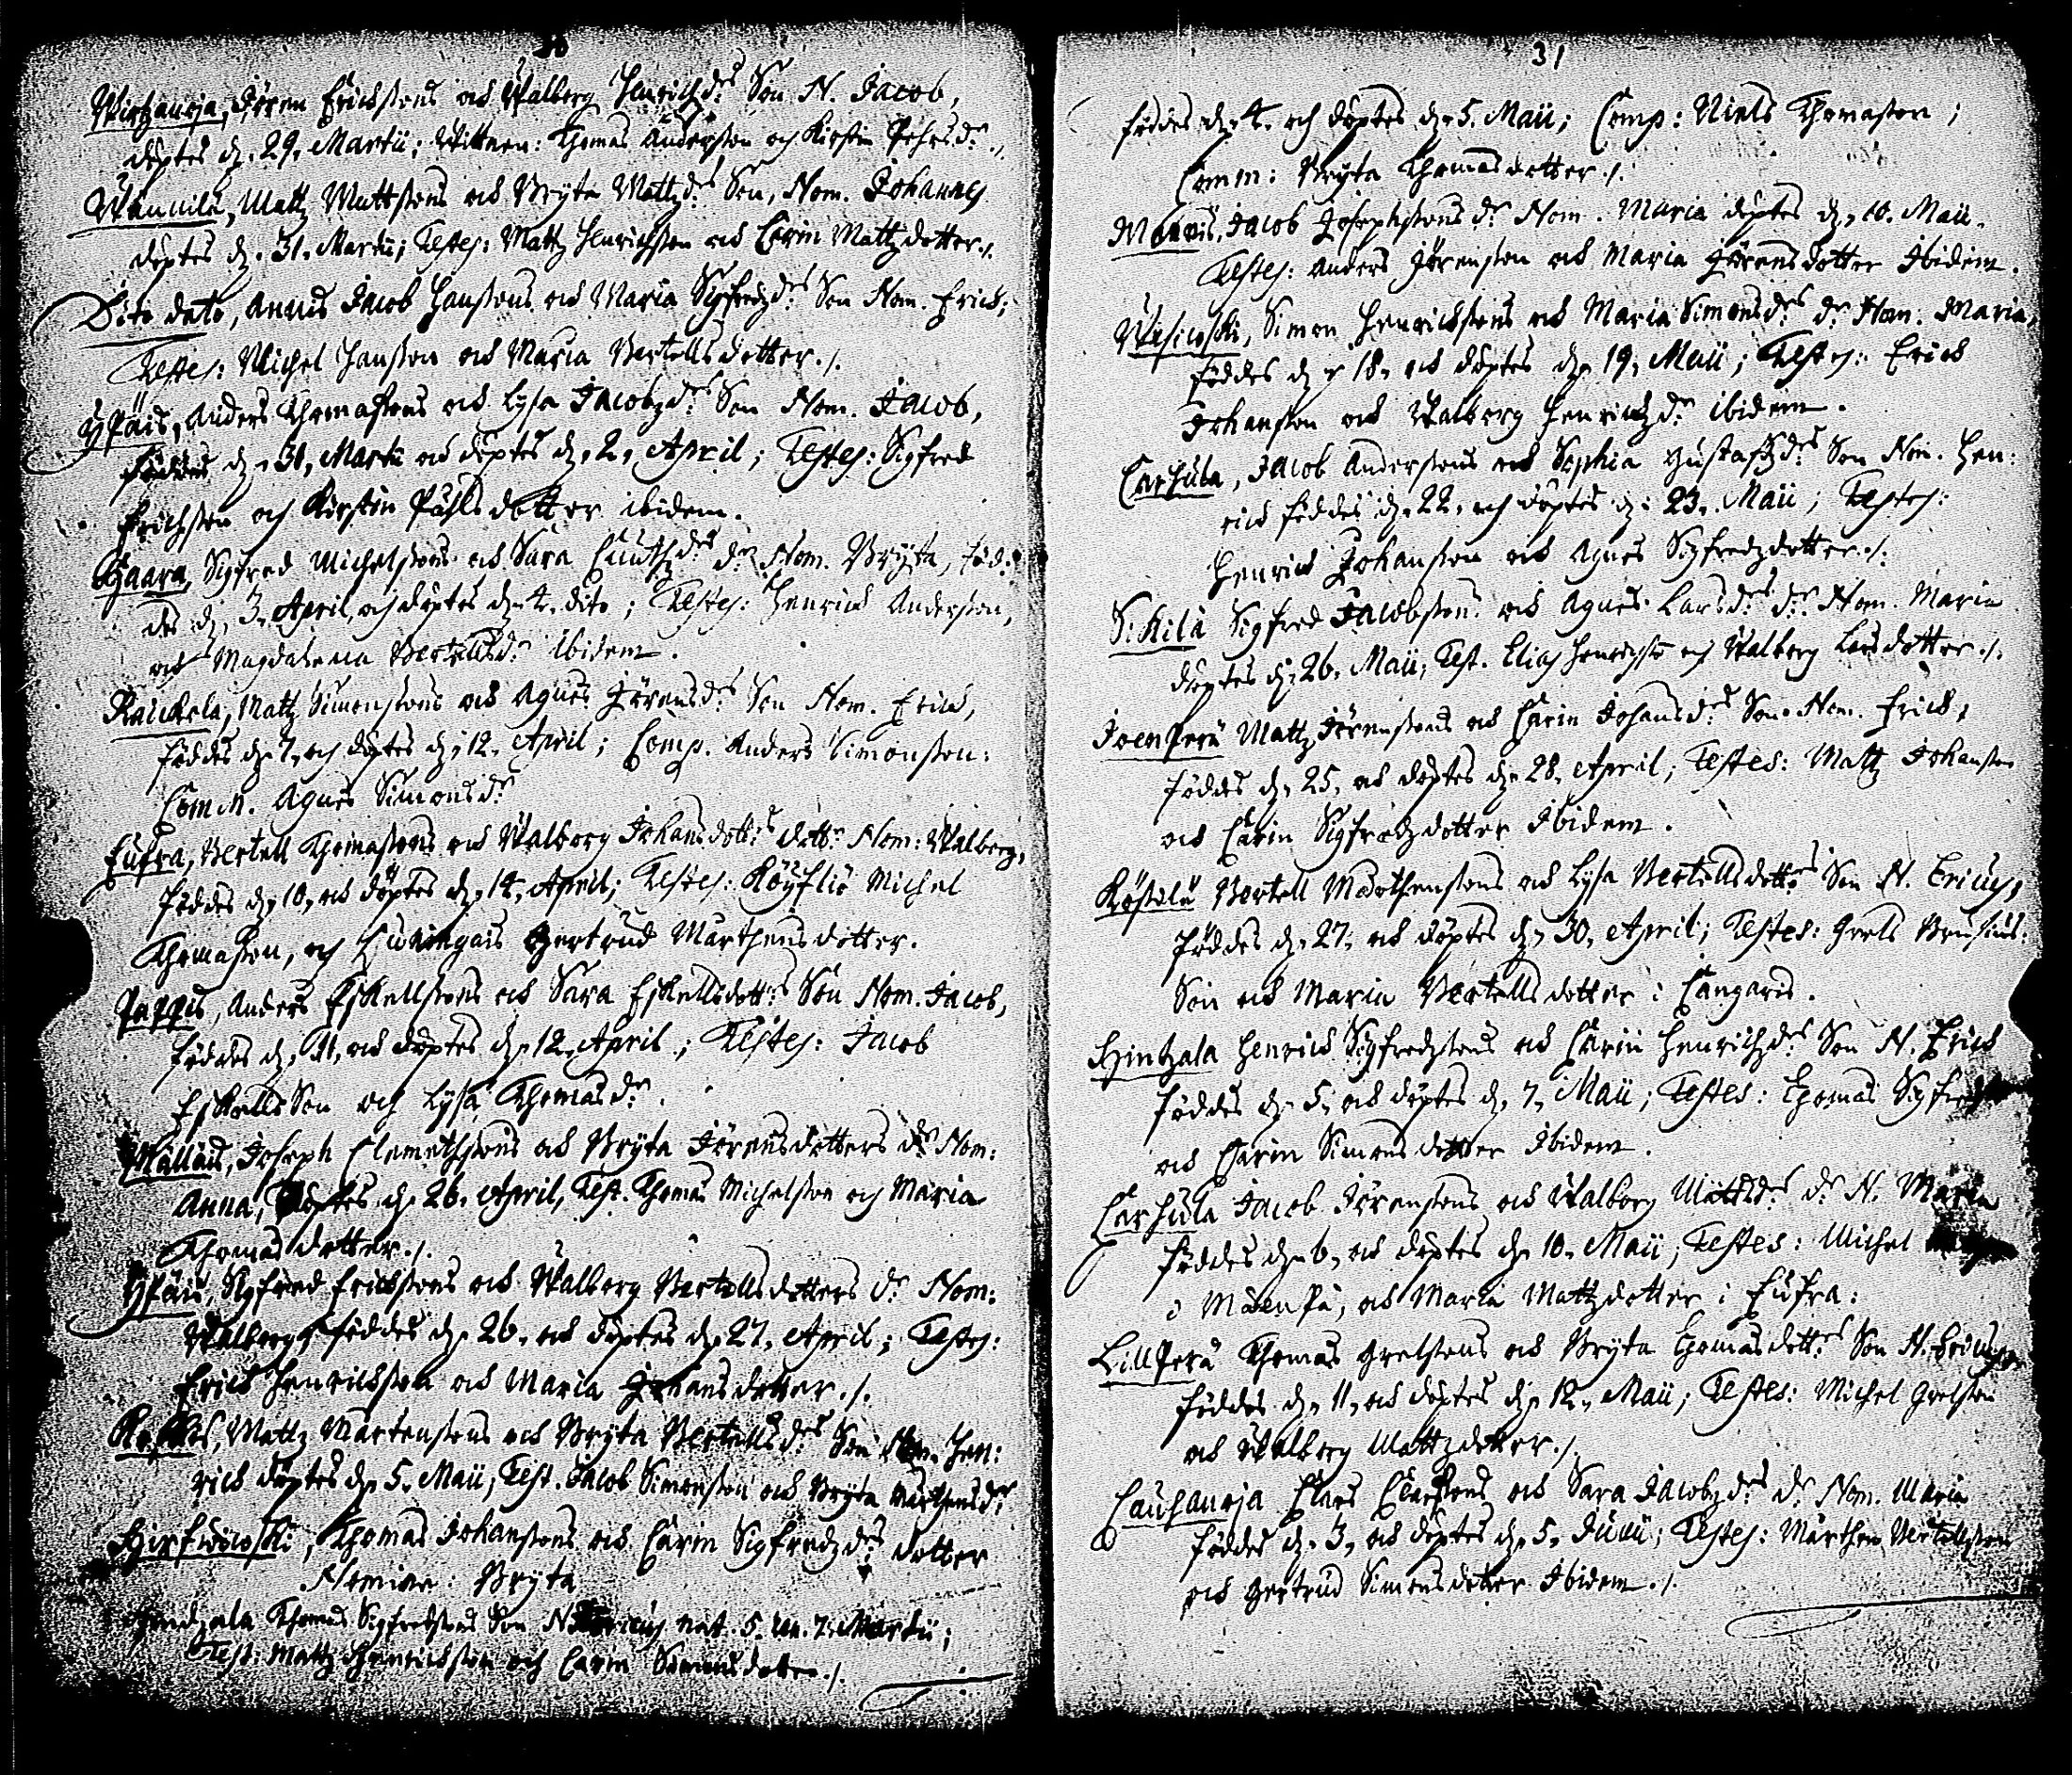 30
Wirtzanoja, Jören Erichssons och Walborg Henrichzdrs Son N. Jacob,
döptes d. 29. Martii; Wittnen: Thomas Andersson och Kirstin Pehrsdr ./.
Wannila, Mattz Mattssons och Bryta Mattzdrs Son, Nom. Johannes
döptes d. 31. Martii; Testes: Mattz Henrichsson och Carin Mattzdotter ./.
Dito dato, Annus Jacob Hanssons och Maria Sigfredzdrs Son Nom. Erick;
Testes: Michel Hansson och Maria Bertellsdotter ./.
Ypäis, Anders Thomassons och Lysa Jacobzdrs Son Nom. Jacob,
föddes d. 31. Martii och döptes d. 2. April; Testes: Sigfred
Erichsson och Kirstin Påhlsdotter ibidem.
Haara, Sigfred Michelssons och Sara Cnutzdrs dr Nom. Bryta, föd:
des d. 3. April, och döptes d. 4. dito; Testes: Henrick Andersson,
och Magdalena Bertellsdr ibidem.
Rauckela, Mattz Simonssons och Agnes Jörensdrs Son Nom. Erick,
föddes d. 7. och döptes d. 12. April; Comp. Anders Simonsson:
Comm. Agnes Simonsdr
Eufra, Bertell Thomassons och Walborg Johansdottrs dottr Nom: Walborg,
föddes d. 10. och döptes d. 14. April; Testes: Köyliö Michel
Thomasson, och Gertrud Mårthensdotter.
Pappis, Anders Eskellssons och Sara Eskellsdottrs Son Nom. Jacob,
föddes d. 11. och döptes d. 12. April; Testes: Jacob
Eskellsson och Lysa Thomasdr.
Mälläis, Joseph Clemethssons och Bryta Jörensdotters dr Nom:
Anna, döptes d. 26. April, Test. Thomas Michelsson och Maria
Thomasdotter ./.
Ypäis, Sigfred Erickssons och Walborg Bertellsdotters dr Nom:
Walborg, föddes d. 26. och döptes d. 27. April; Testes:
Erick Henricksson och Maria Jörensdotter ./.
Mattz Mårtenssons och Bryta Bertellsdrs Son Nom. Hen:
rick döptes d. 5. Maii, Test. Jacob Simonsson och Bryta Mårthensdr
Hirswioski, Thomas Johanssons och Carin Sigfredzdrs dotter
Nomine: Bryta
Thomas Sigfredssons Son N. Ericus nat. 5. 7. Martii;
Test: Mattz Henricksson och Carin Simonsdotter ./.
31
föddes d. 4. och döptes d. 5. Maii; Comp: Niels Thomasson;
Comm: Bryta Thomasdotter ./.
Jacob Josephssons dr Nom. Maria döptes d. 10. Maii.
Testes: Anders Jörensson och Maria Jörensdotter Ibidem.
Wesioski, Simon Henrickssons och Maria Simonsdrs dr Nom. Maria,
föddes d. 18. och döptes d. 19. Maii; Testes: Erick
Johansson och Walborg Henrickzdr ibidem.
Carhula, Jacob Anderssons och Sophia Gustafzdrs Son Nom. Hen:
rick föddes d. 22. och döptes d. 23. Maii; Testes:
Henrick Johansson och Agnes Sigfredzdotter ./.
Sikilä Sigfred Jacobssons och Agnes Larsdrs dr Nom. Maria
döptes d. 26. Maii, Test. Elias Henrichsson och Walborg Larsdotter ./.
Joenperä Mattz Jörenssons och Carin Johansdrs Son Nom. Erick,
föddes d. 25. och döptes d. 28. April; Testes: Mattz Johansson
och Carin Sigfredzdotter Ibidem.
Köstilä Bertell Mårthenssons och Lysa Bertellsdottrs Son N. Ericus,
föddes d. 27. och döptes d. 30. April; Testes: Grels Brusius:
Son och Maria Bertellsdotter i Cangaris.
Hintzala Henrick Sigfredzsons och Carin Henrichzdrs Son N. Erick
föddes d. 5. och döptes d. 7. Maii; Testes: Thomas
och Carin Simonsdotter Ibidem.
Carhula Jacob Jörenssons och Walborg Mattzdrs dr N. Maria
föddes d. 6. och döptes d. 10. Maii; Testes: Michel
i Mäenpä, och Maria Mattzdotter i Eufra:
Lillperä Thomas Grelssons och Bryta Thomasdottrs Son N. Ericus
föddes d. 11. och döptes d. 12. Maii; Testes: Michel Grelsson
och Walborg Mattzdotter ./.
Cauhanoja Claes Claessons och Sara Jacobzdrs dr Nom. Maria
föddes d. 3. och döptes d. 5. Junii; Testes: Mårthen Bertellsson
och Gertrud Simonsdotter Ibidem ./.